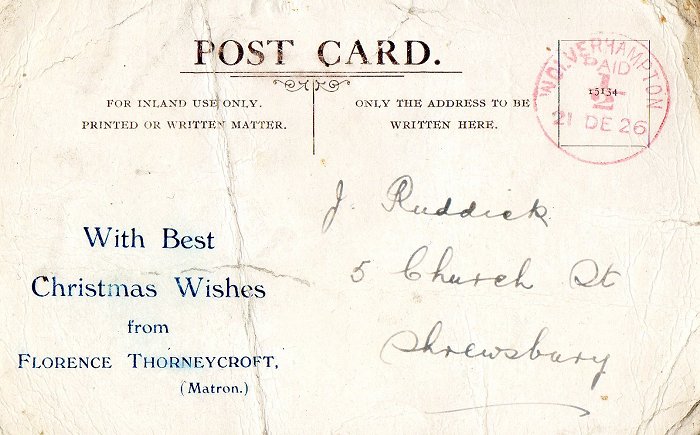 POST CARD.
FOR INLAND USE ONLY.
PRINTED OR WRITTEN MATTER.
ONLY THE ADDRESS TO BE
WRITTEN HERE.
WOLVERHAMPTON
PAID
15134
21 DE 26
With Best
Christmas Wishes
from
FLORENCE THORNEYCROFT,
(Matron.)
J. Ruddick
5 Church St
Shrewsbury